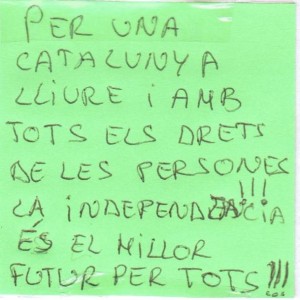 PER UNA
CATALUNYA
LLIURE I AMB
TOTS ELS DRETS
DE LES PERSONES
LA INDEPENDÈNCIA!!!
ÉS EL MILLOR
FUTUR PER TOTS!!!